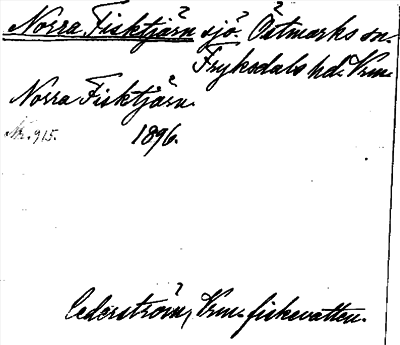 Norra Fisktjärn sjö. Östmarks sn.
Fryksdals hd. Vrm.
Norra Fisktjärn.
Nr. 915. 1896.
Cederström, Vrm. fiskevatten.